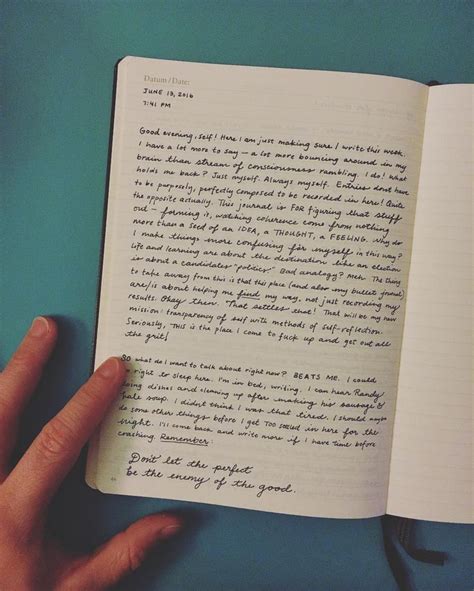 Datum / Date:
JUNE 13, 2016
7:41 PM
Good evening, self! Here I am just making sure I write this week.
I have a lot more to say – a lot more bouncing around in my
brain than stream of consciousness rambling. I do! What
holds me back? Just myself. Always myself. Entries don't have
to be purposely, perfectly composed to be recorded in here! Quite
the opposite actually. This journal is FOR figuring that stuff
out – forming it, watching coherence come from nothing
more than a seed of an IDEA, a THOUGHT, a FEELING. Why do
I make things more confusing for myself in this way?
Life and learning are about the destination like an election
is about a candidate's "politics." Bad analogy? Meh. The thing
to take away from this is that this place (and also my bullet journal)
are/is about helping me find my way, not just recording my
results. Okay then. That settles that! That will be my new
mission: transparency of self with methods of self-reflection.
Seriously, THIS is the place I come to fuck up and get out all
the grit!
SO what do I want to talk about right now? BEATS ME. I could
right to sleep here. I'm in bed, writing. I can hear Randy
doing dishes and cleaning up after making his sausage &
kale soup. I didn't think I was that tired. I should maybe
do some other things before I get TOO settled in here for the
night. I'll come back and write more if I have time before
coaching. Remember:
Don't let the perfect
be the enemy of the good.